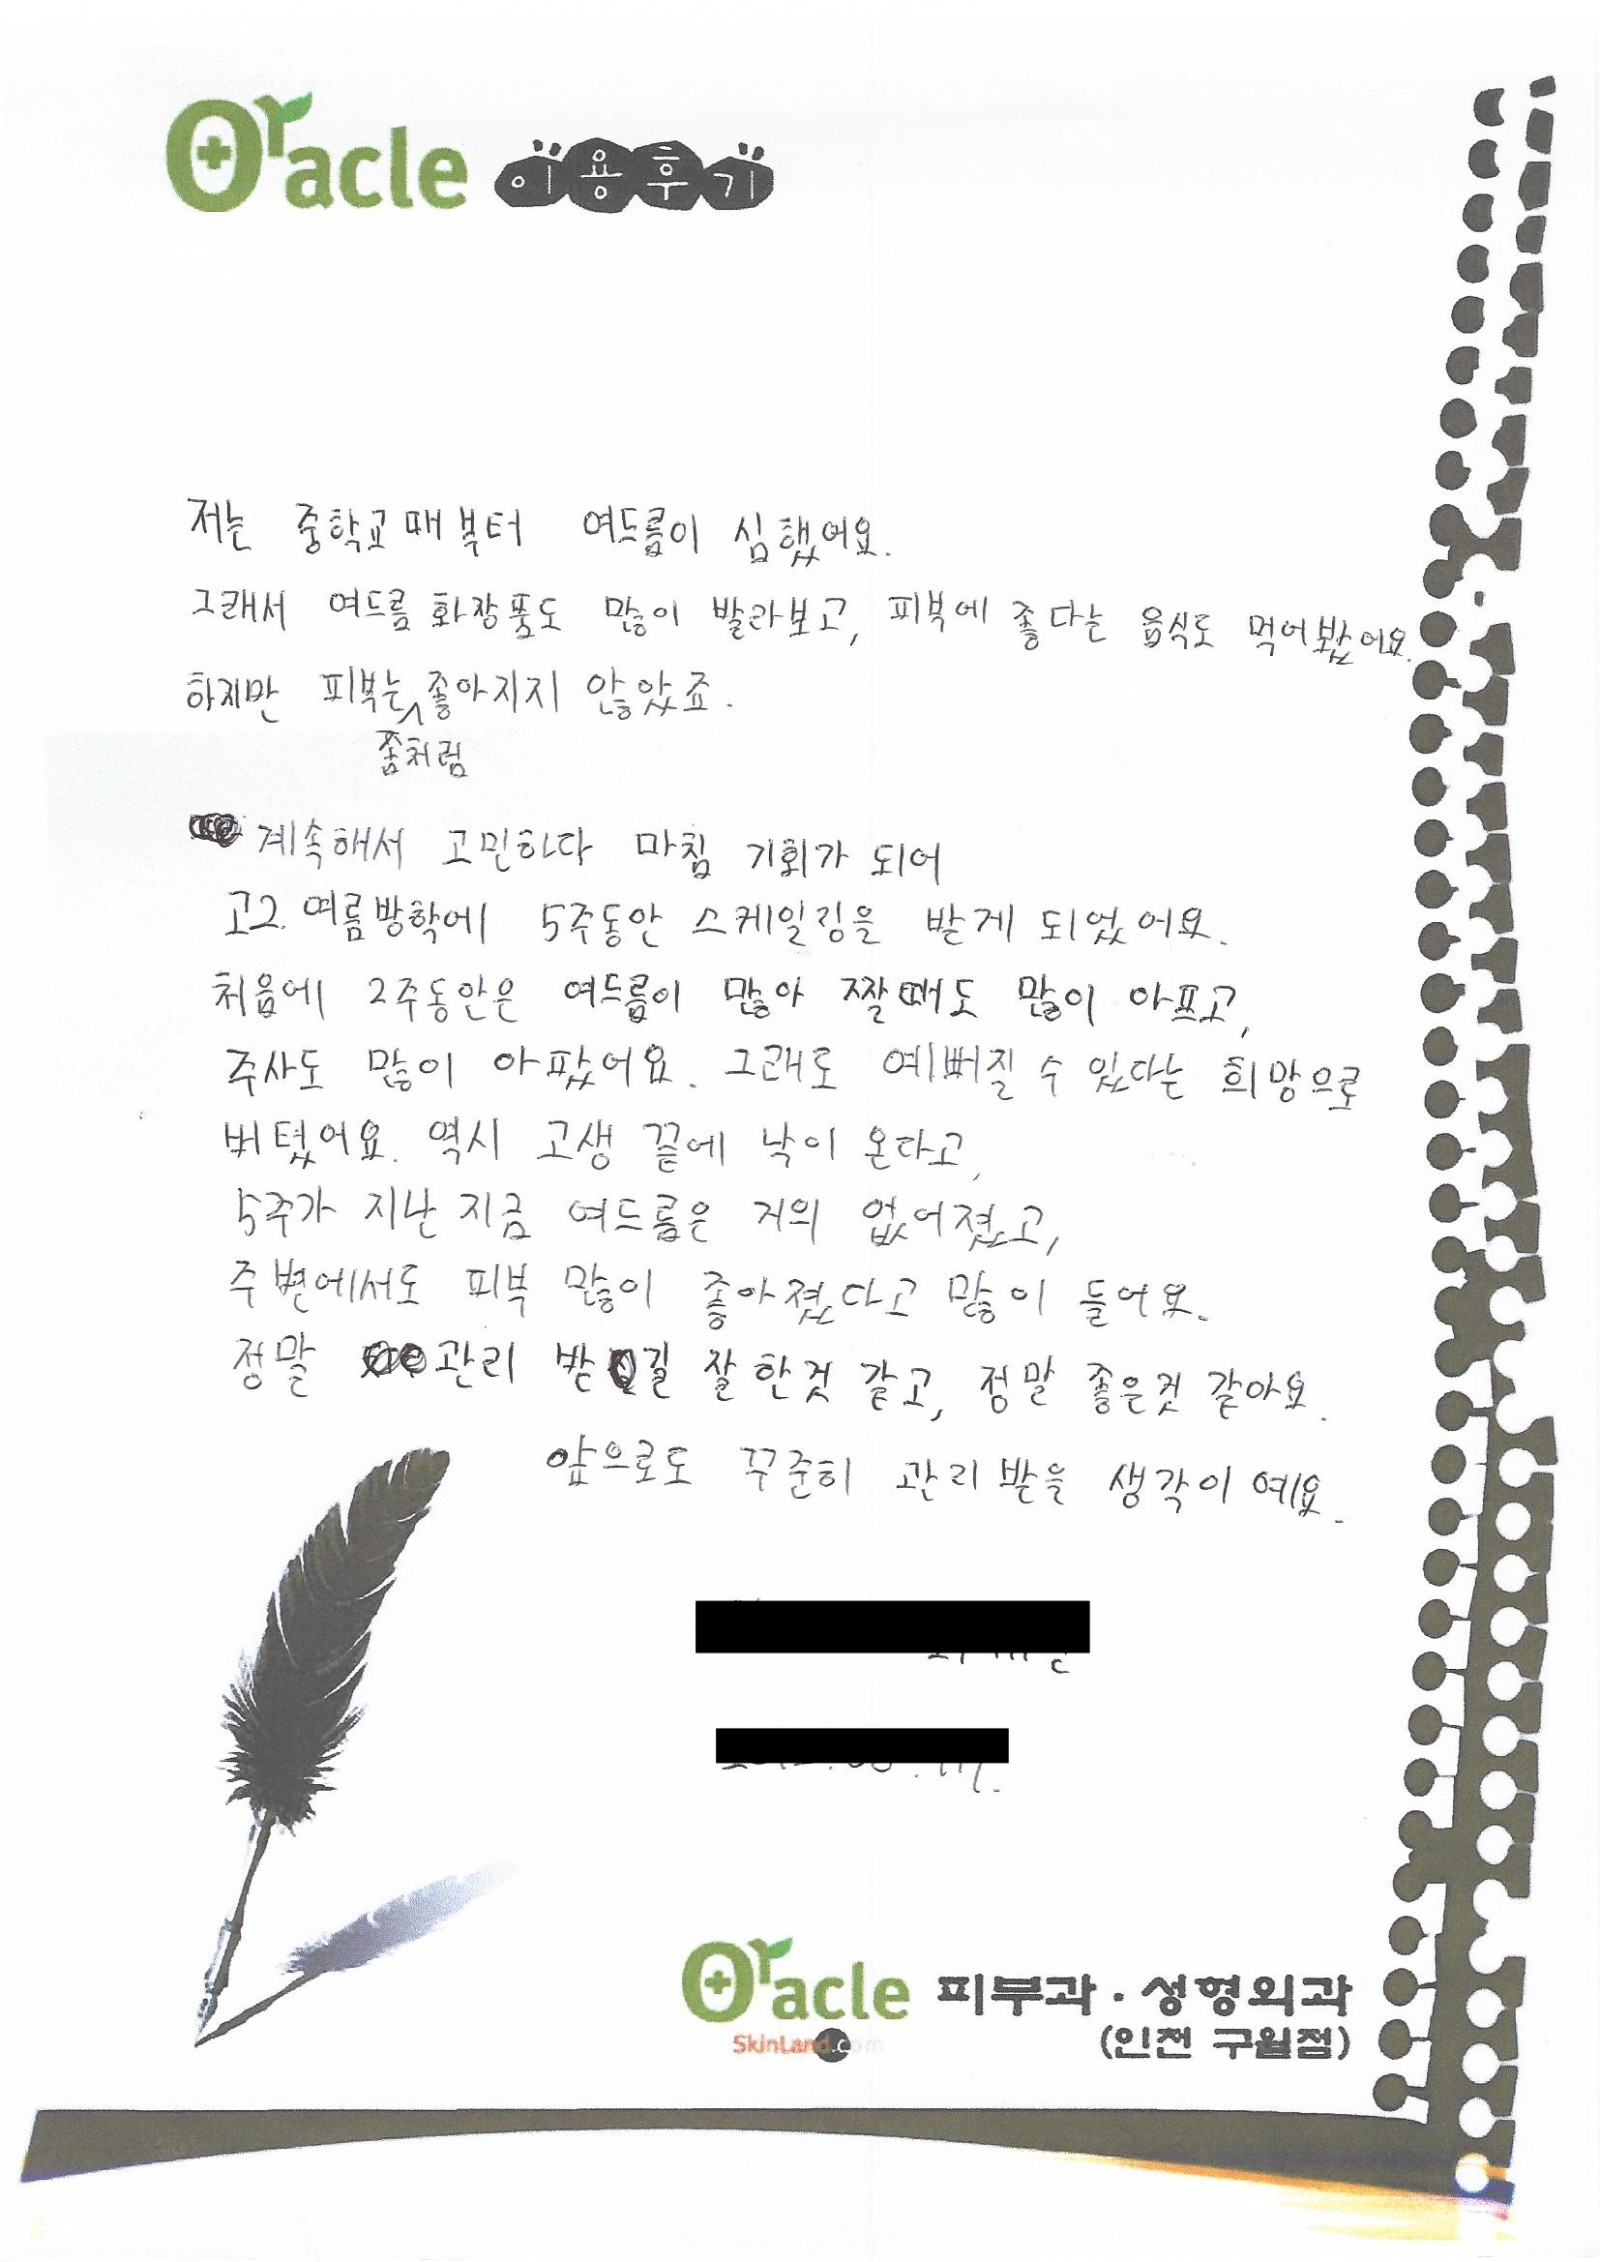 Oracle 이용후기
저는 중학교때부터 여드름이 심했어요.
그래서 여드름 화장품도 많이 발라보고, 피부에 좋다는 음식도 먹어봤어요.
하지만 피부는 좋아지지 않았죠.
좀처럼
계속해서 고민하다 마침 기회가 되어
고2. 여름방학에 5주동안 스케일링을 받게 되었어요.
처음에 2주동안은 여드름이 많아 짤때도 많이 아프고,
주사도 많이 아팠어요. 그래도 예뻐질 수 있다는 희망으로
버텼어요. 역시 고생 끝에 낙이 온다고,
5주가 지난 지금 여드름은 거의 없어졌고,
주변에서도 피부 많이 좋아졌다고 많이 들어요.
정말 관리 받길 잘 한것 같고, 정말 좋은것 같아요.
앞으로도 꾸준히 관리 받을 생각이예요.
Oracle 피부과·성형외과
SkinLand.com (인천 구월점)